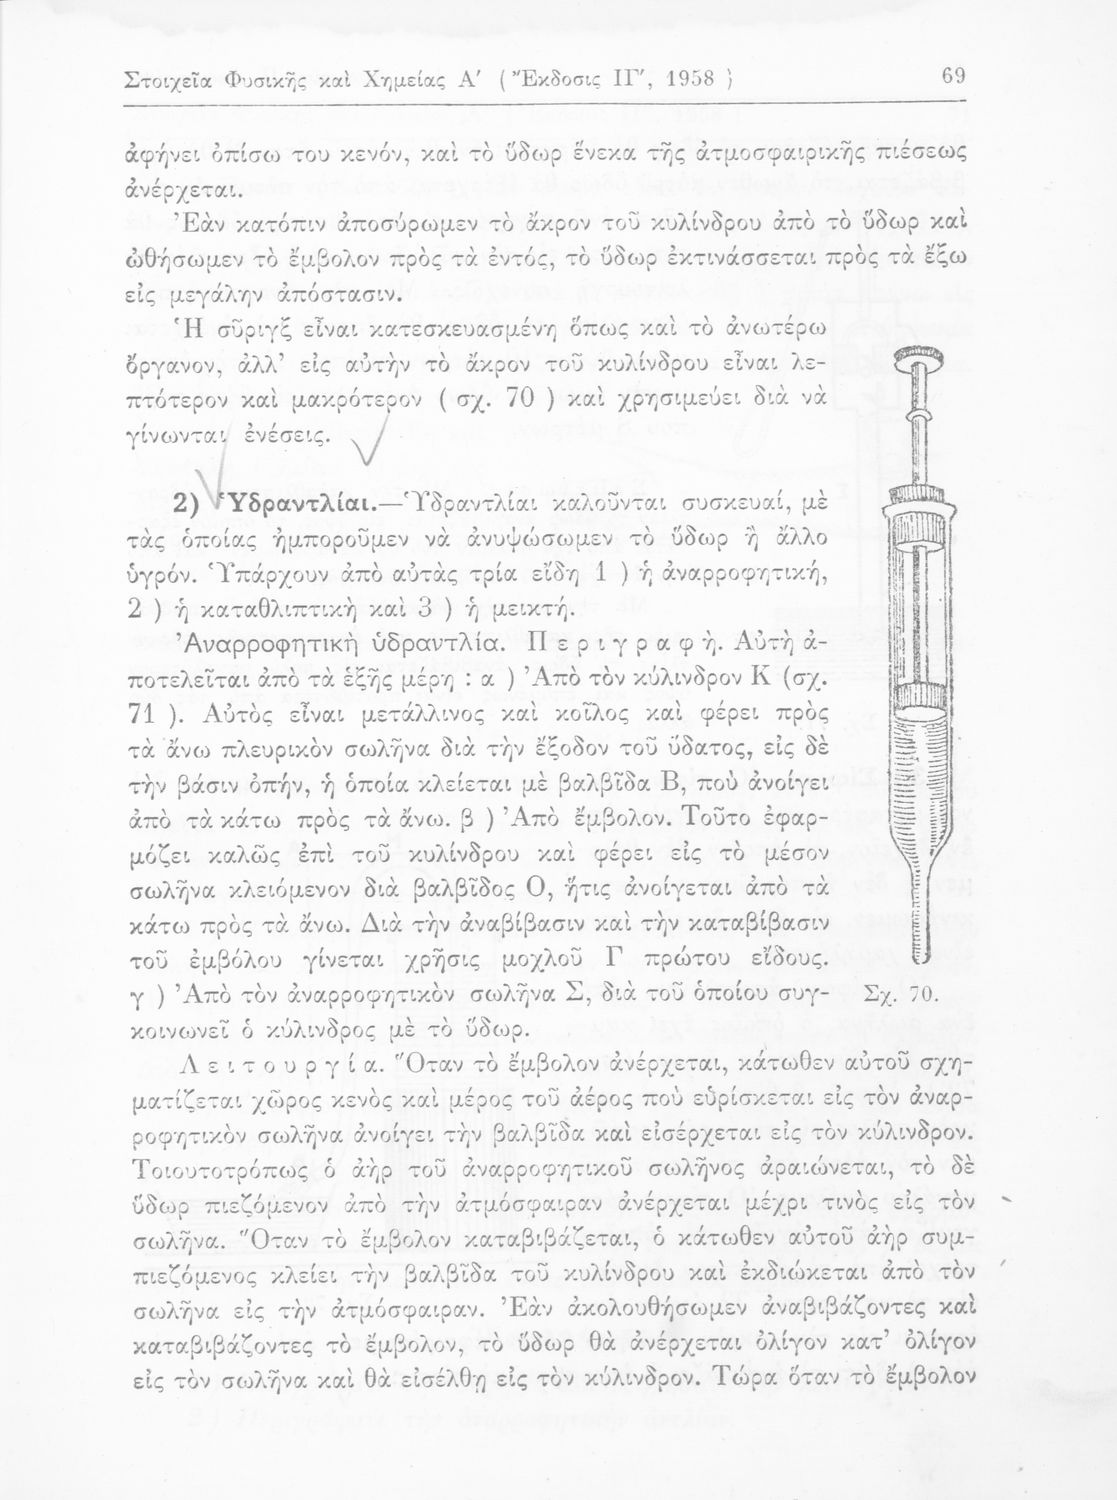 Στοιχεῖα Φυσικῆς καὶ Χημείας Α′ ( Ἔκδοσις ΙΓ′, 1958 ) 69
ἀφήνει ὀπίσω του κενόν, καὶ τὸ ὕδωρ ἕνεκα τῆς ἀτμοσφαιρικῆς πιέσεως
ἀνέρχεται.
Ἐὰν κατόπιν ἀποσύρωμεν τὸ ἄκρον τοῦ κυλίνδρου ἀπὸ τὸ ὕδωρ καὶ
ὠθήσωμεν τὸ ἔμβολον πρὸς τὰ ἐντός, τὸ ὕδωρ ἐκτινάσσεται πρὸς τὰ ἔξω
εἰς μεγάλην ἀπόστασιν.
Ἡ σῦριγξ εἶναι κατεσκευασμένη ὅπως καὶ τὸ ἀνωτέρω
ὄργανον, ἀλλ’ εἰς αὐτὴν τὸ ἄκρον τοῦ κυλίνδρου εἶναι λε-
πτότερον καὶ μακρότερον ( σχ. 70 ) καὶ χρησιμεύει διὰ νὰ
γίνωνται ἐνέσεις.
2) Ὑδραντλίαι.—Ὑδραντλίαι καλοῦνται συσκευαί, μὲ
τὰς ὁποίας ἠμποροῦμεν νὰ ἀνυψώσωμεν τὸ ὕδωρ ἢ ἄλλο
ὑγρόν. Ὑπάρχουν ἀπὸ αὐτὰς τρία εἴδη 1 ) ἡ ἀναρροφητική,
2 ) ἡ καταθλιπτικὴ καὶ 3 ) ἡ μεικτή.
Ἀναρροφητικὴ ὑδραντλία. Π ε ρ ι γ ρ α φ ή. Αὐτὴ ἀ-
ποτελεῖται ἀπὸ τὰ ἑξῆς μέρη : α ) Ἀπὸ τὸν κύλινδρον Κ (σχ.
71 ). Αὐτὸς εἶναι μετάλλινος καὶ κοῖλος καὶ φέρει πρὸς
τὰ ἄνω πλευρικὸν σωλῆνα διὰ τὴν ἔξοδον τοῦ ὕδατος, εἰς δὲ
τὴν βάσιν ὀπήν, ἡ ὁποία κλείεται μὲ βαλβῖδα Β, ποὺ ἀνοίγει
ἀπὸ τὰ κάτω πρὸς τὰ ἄνω. β ) Ἀπὸ ἔμβολον. Τοῦτο ἐφαρ-
μόζει καλῶς ἐπὶ τοῦ κυλίνδρου καὶ φέρει εἰς τὸ μέσον
σωλῆνα κλειόμενον διὰ βαλβῖδος Ο, ἥτις ἀνοίγεται ἀπὸ τὰ
κάτω πρὸς τὰ ἄνω. Διὰ τὴν ἀναβίβασιν καὶ τὴν καταβίβασιν
τοῦ ἐμβόλου γίνεται χρῆσις μοχλοῦ Γ πρώτου εἴδους.
γ ) Ἀπὸ τὸν ἀναρροφητικὸν σωλῆνα Σ, διὰ τοῦ ὁποίου συγ-
κοινωνεῖ ὁ κύλινδρος μὲ τὸ ὕδωρ.
Σχ. 70.
Λ ε ι τ ο υ ρ γ ί α. Ὅταν τὸ ἔμβολον ἀνέρχεται, κάτωθεν αὐτοῦ σχη-
ματίζεται χῶρος κενὸς καὶ μέρος τοῦ ἀέρος ποὺ εὑρίσκεται εἰς τὸν ἀναρ-
ροφητικὸν σωλῆνα ἀνοίγει τὴν βαλβῖδα καὶ εἰσέρχεται εἰς τὸν κύλινδρον.
Τοιουτοτρόπως ὁ ἀὴρ τοῦ ἀναρροφητικοῦ σωλῆνος ἀραιώνεται, τὸ δὲ
ὕδωρ πιεζόμενον ἀπὸ τὴν ἀτμόσφαιραν ἀνέρχεται μέχρι τινὸς εἰς τὸν
σωλῆνα. Ὅταν τὸ ἔμβολον καταβιβάζεται, ὁ κάτωθεν αὐτοῦ ἀὴρ συμ-
πιεζόμενος κλείει τὴν βαλβῖδα τοῦ κυλίνδρου καὶ ἐκδιώκεται ἀπὸ τὸν
σωλῆνα εἰς τὴν ἀτμόσφαιραν. Ἐὰν ἀκολουθήσωμεν ἀναβιβάζοντες καὶ
καταβιβάζοντες τὸ ἔμβολον, τὸ ὕδωρ θὰ ἀνέρχεται ὀλίγον κατ’ ὀλίγον
εἰς τὸν σωλῆνα καὶ θὰ εἰσέλθῃ εἰς τὸν κύλινδρον. Τώρα ὅταν τὸ ἔμβολον